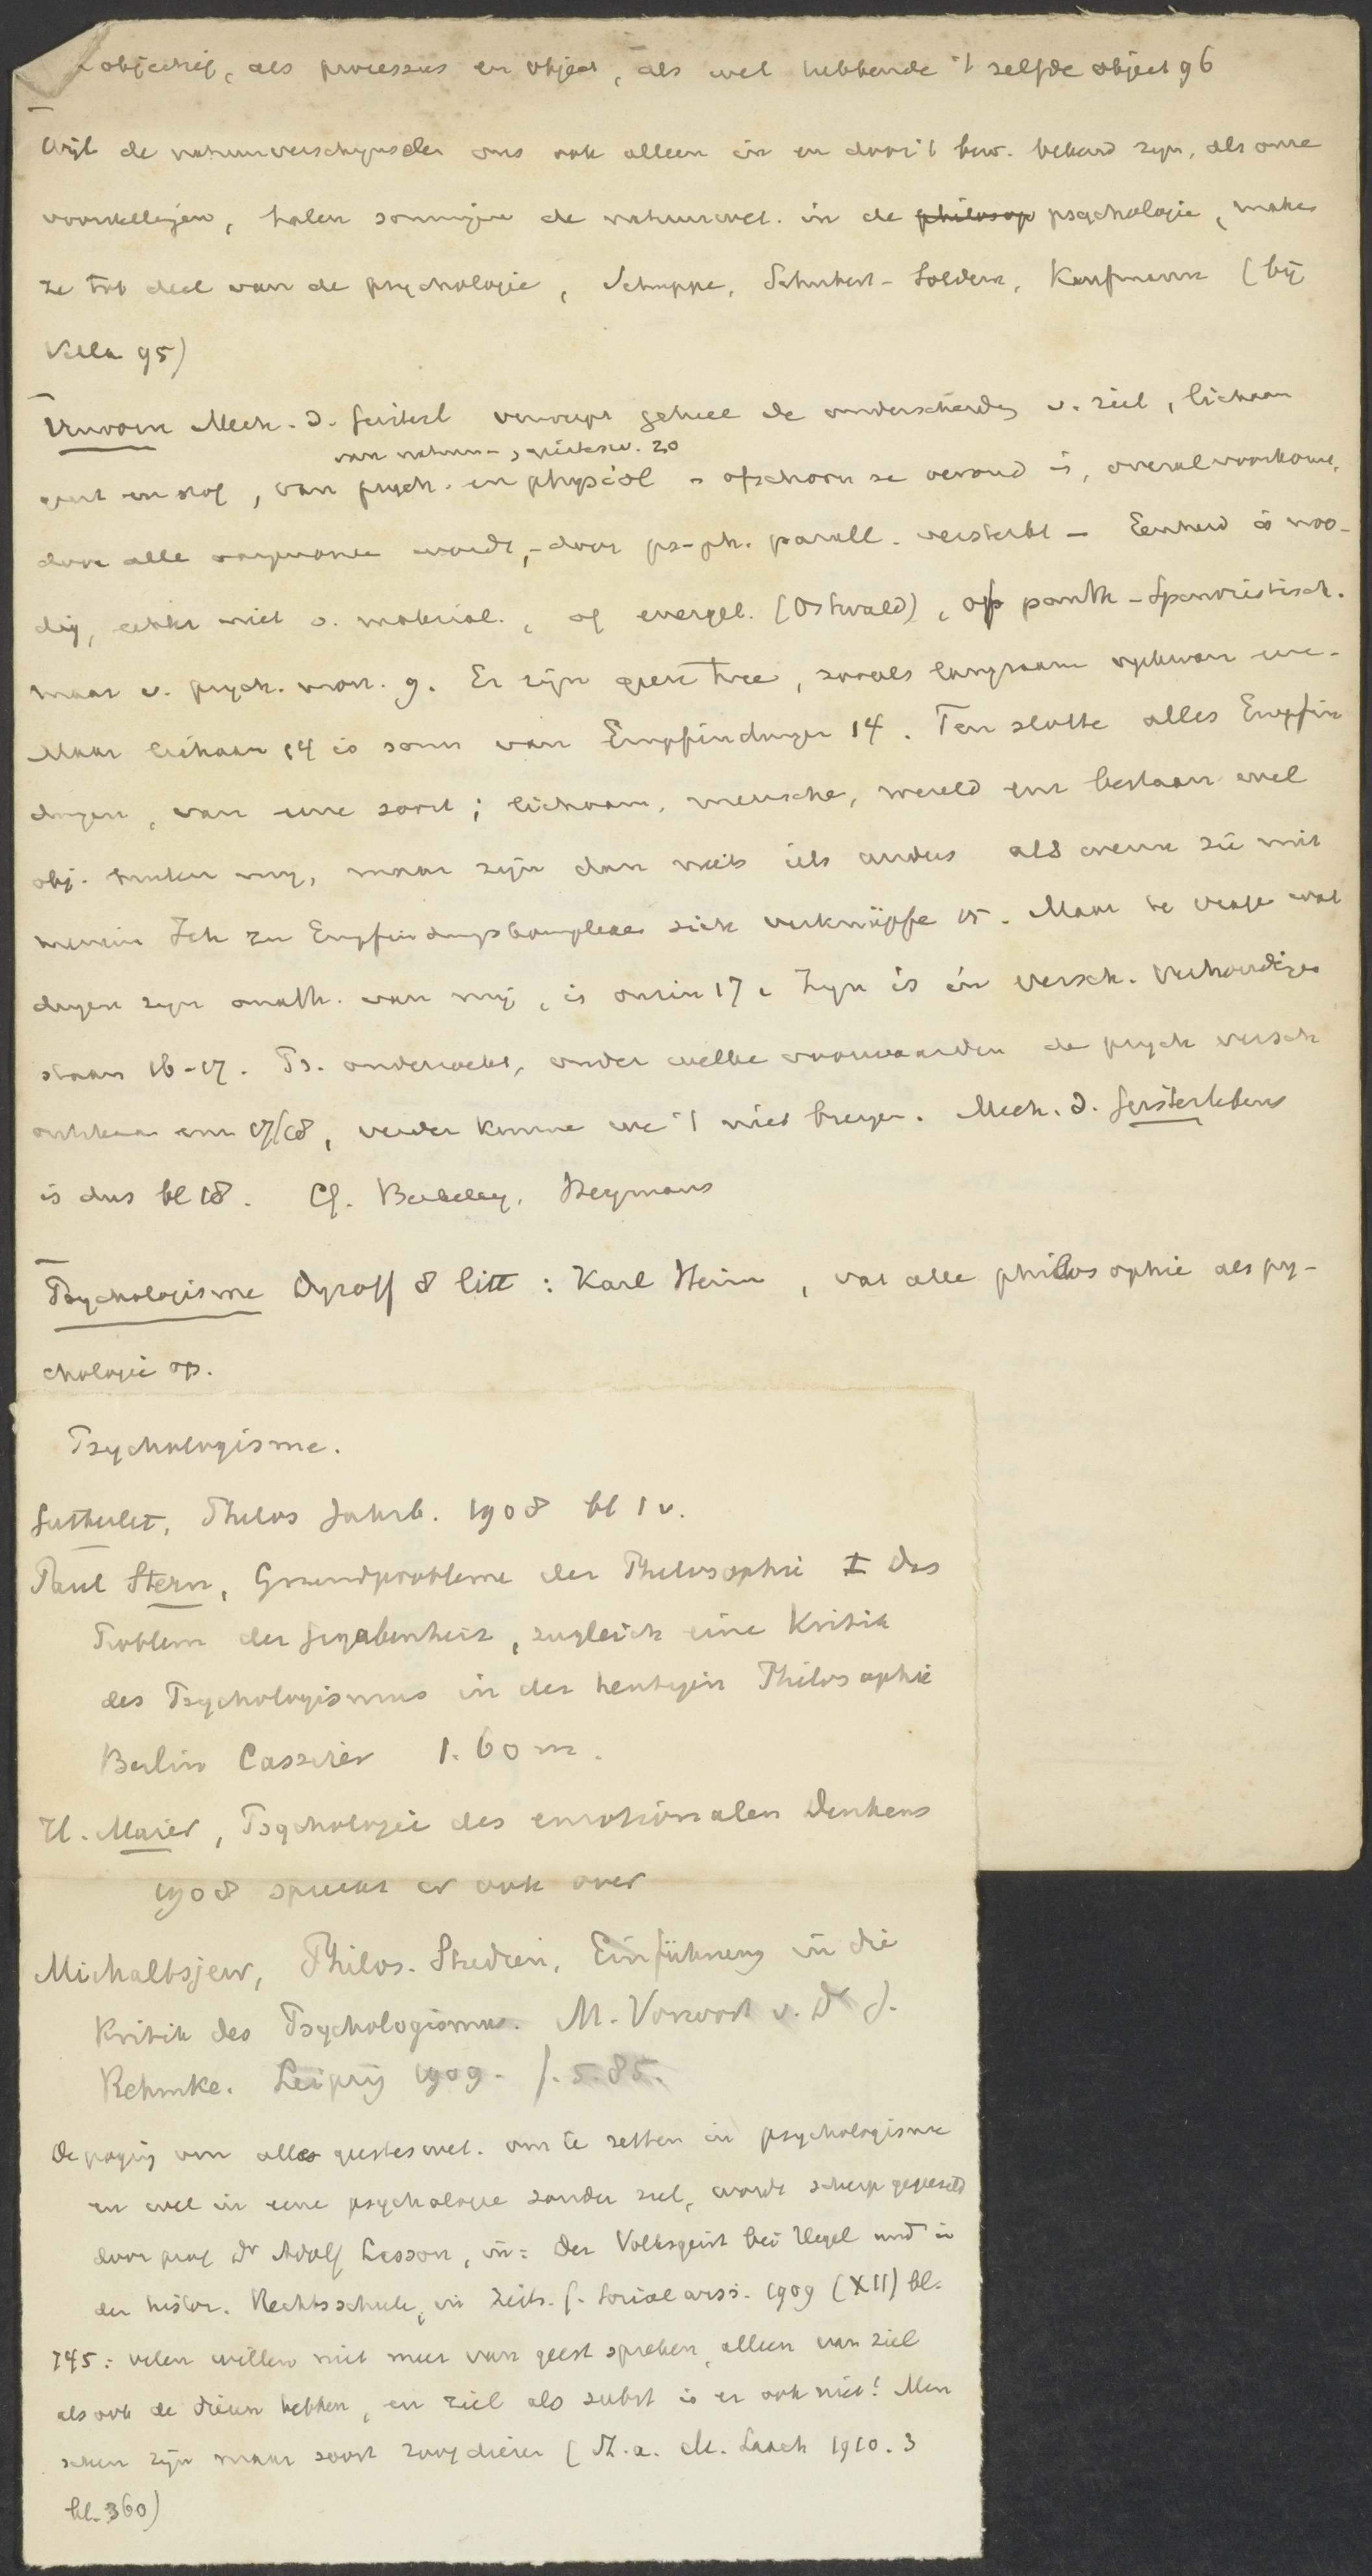 objectief, als processus en object, als wel hebbende 't zelfde object 96
Wijl de natuurverschijnselen ons ook alleen in en door 't bew. bekend zijn, als onze
voorstellingen, halen sommigen de natuurwet. in de philosop psychologie, maken
ze tot deel van de psychologie, Schuppe, Schubert-Soldern, Kaufmann (bij
Villa 95)
Verworn Mech. d. Geistesl verwerpt geheel de onderscheiding v. ziel, lichaam
van natuur-, geistesw. 20
geest en stof, van psych. en physiol - ofschoon ze oeroud is, overal voorkomt,
door alle aangenomen wordt, - door ps-ph. parall. versterkt - Eenheid is noo-
dig, echter niet v. material., of energet. (Ostwald), of panth-Spinozistisch.
maar v. psych. mon. 9. Er zijn geen twee, zooals langzaam
Maar lichaam 14 is som van Empfindungen 14. Ten slotte alles Empfin
dungen, van eene soort; lichaam, menschen, wereld enz bestaan wel
obj. buiten mij, maar zijn dan niets iets anders als wenn sie mit
meinem Ich zu Empfindungskomplexe sich verknüpfe 15. Maar de vraag wat
dingen zijn onafh. van mij, is onzin 17. Zijn is in versch. verhoudingen
staan 16-17. Ps. onderzoekt, onder welke voorwaarden de psych versch
ontstaan enz 17/18, verder kunnen we 't niet brengen. Mech. d. Geisteslebens
is dus bl 18. Cf. Berkeley, Heymans
Psychologisme Dyroff 8 litt: Karl Heim, vat alle philosophie als psy-
chologie op.
Psychologisme.
Gutberlet, Philos Jahrb. 1908 bl 1 v.
Paul Stern, Grundprobleme der Philosophie I das
Problem der Gegebenheit, zugleich eine Kritik
des Psychologismus in der heutigen Philosophie
Berlin Cassirer 1.60 m.
H. Maier, Psychologie des emotionalen Denkens
1908 spreekt er ook over
Michaltsjew, Philos. Studien, Einführung in die
Kritik des Psychologismus. M. Vorwort v. Dr J.
Rehmke. Leipzig 1909. f. 5.85.
De poging om alle geesteswet. om te zetten in psychologisme
en wel in eene psychologie zonder ziel, wordt scherp gegeeseld
door prof Dr Adolf Lasson, in: Der Volksgeist bei Hegel und in
der histor. Rechtsschule, in Zeits. f. Socialwiss. 1909 (XII) bl.
745: velen willen niet meer van geest spreken, alleen van ziel
als ook de dieren hebben, en ziel als subst is er ook niet! Men
schen zijn maar soort zoogdieren (St. a. M. Laach 1910. 3
bl. 360)